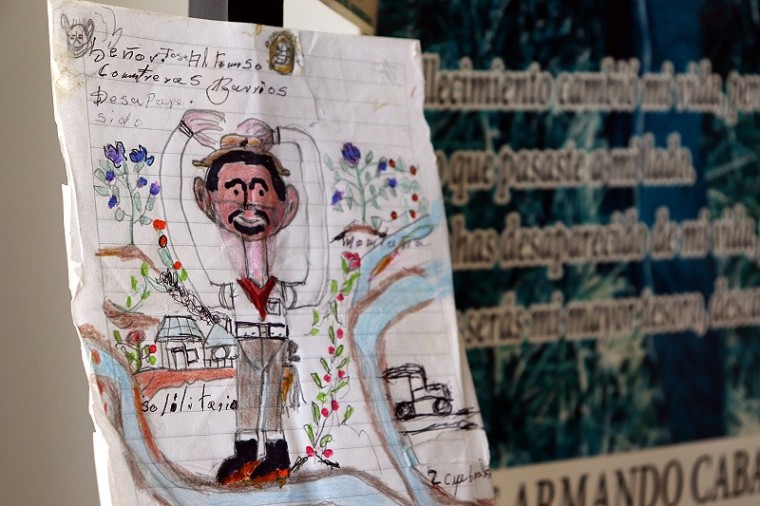 Señor. Jose Alfonso
Contreras Barrios
Desapare.
sido
montaña
solilitario
2 cuebra
llecimiento cambió mi vida,
que pasaste a mi lado.
has desaparecido de mi vida,
serás mi
ARMANDO CABA